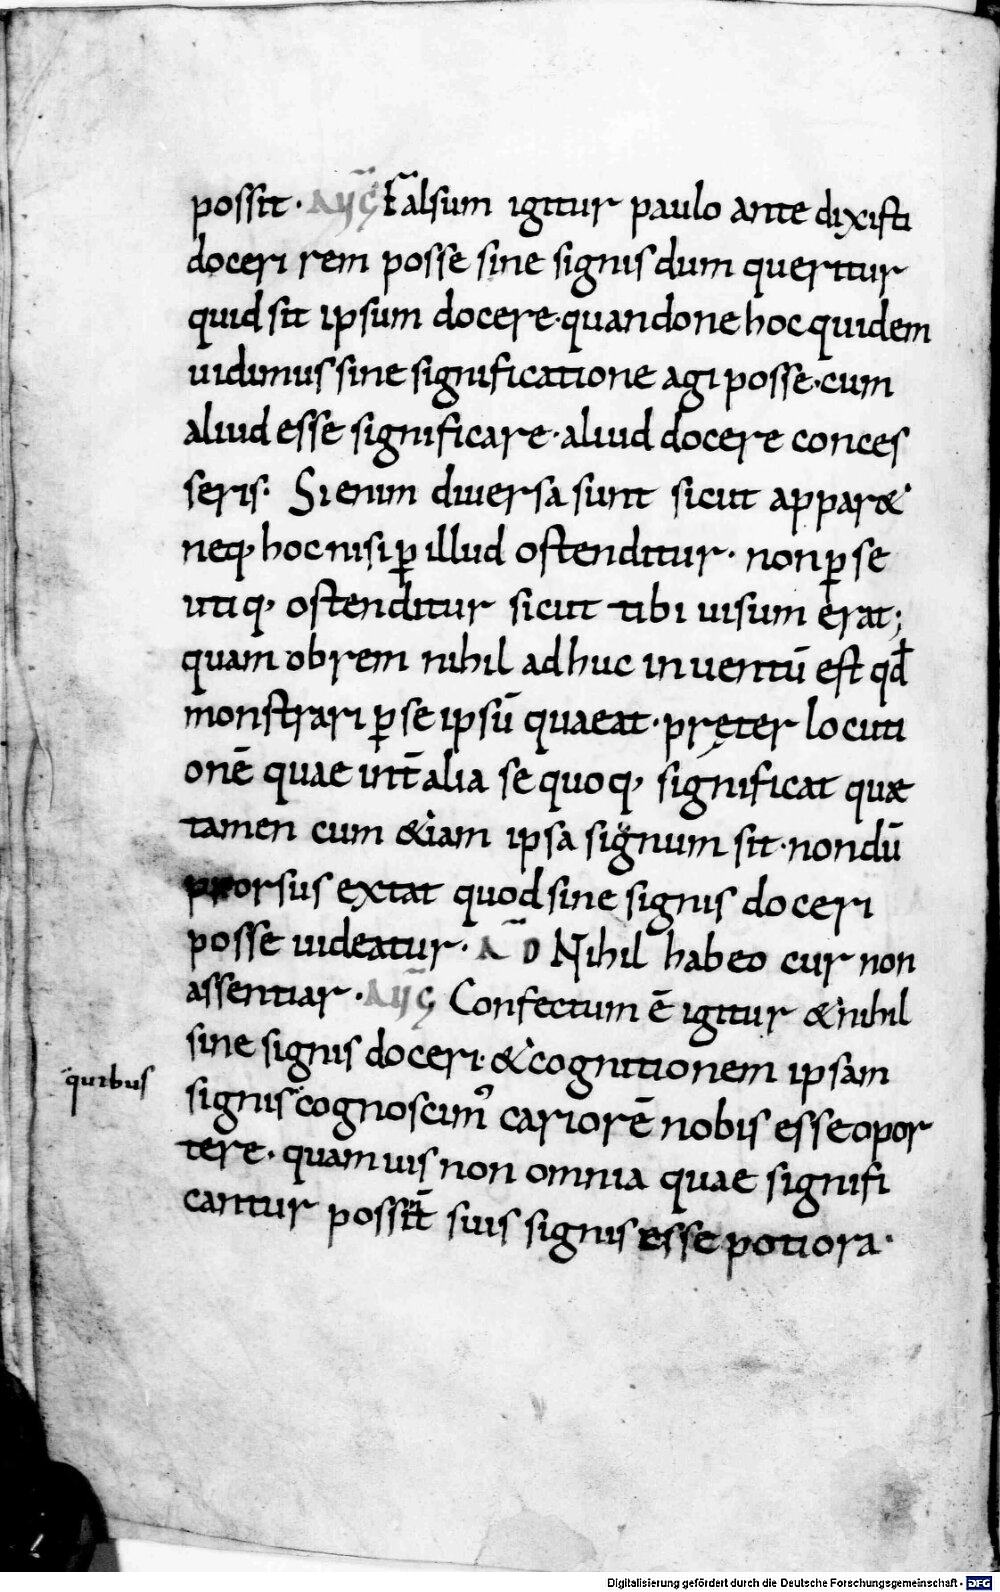 possit· AUḠ Falsum igitur paulo ante dixisti
doceri rem posse sine signis dum queritur
quid sit ipsum docere·quando ne hoc quidem
uidimus sine significatione agi posse·cum
aliud esse significare·aliud docere conces
seris· Si enim diuersa sunt sicut appar&
neq, hoc nisi ꝑ illud ostenditur· non ꝑ se
utiq, ostenditur sicut tibi uisum erat;
quam obrem nihil adhuc inuentū est qđ
monstrari ꝑ se ipsū quaeat·pręter locuti
onē quae int̄ alia se quoq, significat quæ
tamen cum &iam ipsa signum sit·nondū
prorsus extat quod sine signis doceri
posse uideatur· A͞D Nihil habeo cur non
assentiar·AUḠ Confectum ē igitur & nihil
sine signis doceri·& cognitionem ipsam
quibus
signis cognoscim᾿ cariorē nobis esse opor
tere· quamuis non omnia quae signifi
cantur possint suis signis esse potiora·
Digitalisierung gefördert durch die Deutsche Forschungsgemeinschaft - DFG